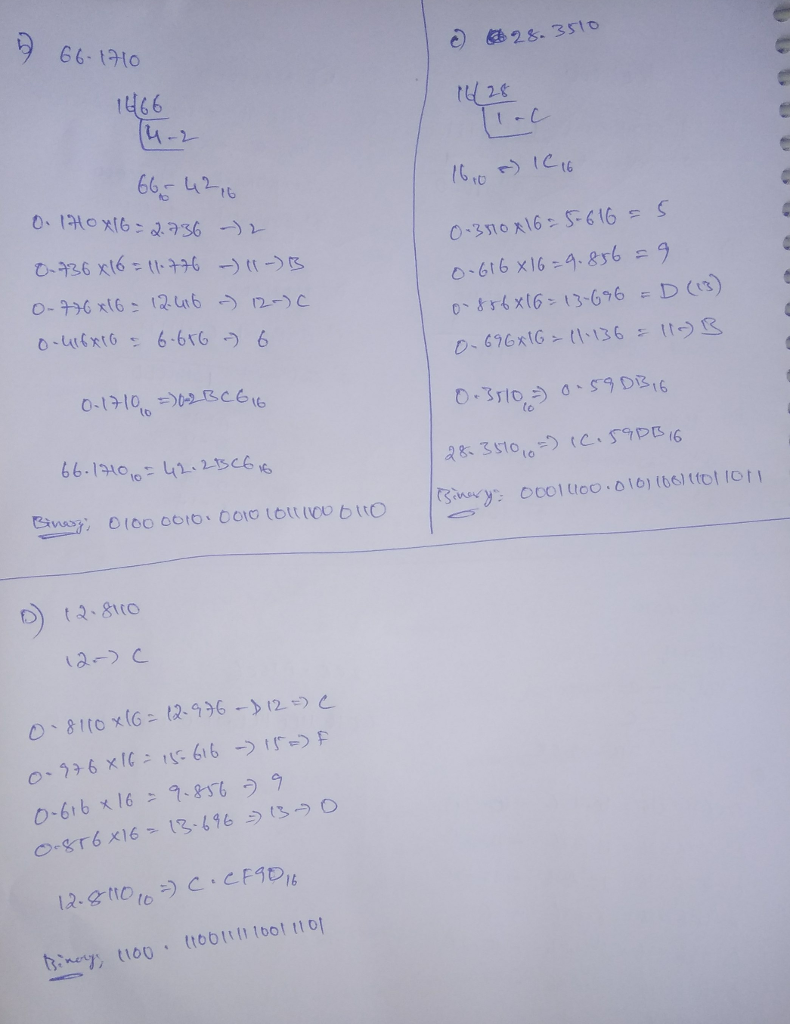 b) 66.1710
16 66
4-2
66₁₀ = 42₁₆
0.1710 x16 = 2.736 → 2
0.736 x16 = 11.776 → 11 → B
0.776 x16 = 12.416 → 12 → C
0.416x16 = 6.656 → 6
0.1710₁₀ => 0.2BC6₁₆
66.1710₁₀ = 42.2BC6₁₆
Binary; 0100 0010. 0010 1011 1100 0110
c) 28.3510
16 28
1-C
16₁₀ => 1C₁₆
0.3510 x16 = 5.616 = 5
0.616 x16 = 9.856 = 9
0.856x16 = 13.696 = D (13)
0.696x16 = 11.136 = 11 → B
0.3510₁₀ => 0.59DB₁₆
28.3510₁₀ => 1C.59DB₁₆
Binary: 00011100.0101100111011011
D) 12.8110
12 → C
0.8110 x16 = 12.976 → 12 => C
0.976 x16 = 15.616 → 15 => F
0.616 x 16 = 9.856 → 9
0.856 x16 = 13.696 => 13 → D
12.8110₁₀ => C.CF9D₁₆
Binary; 1100 . 1100111110011101